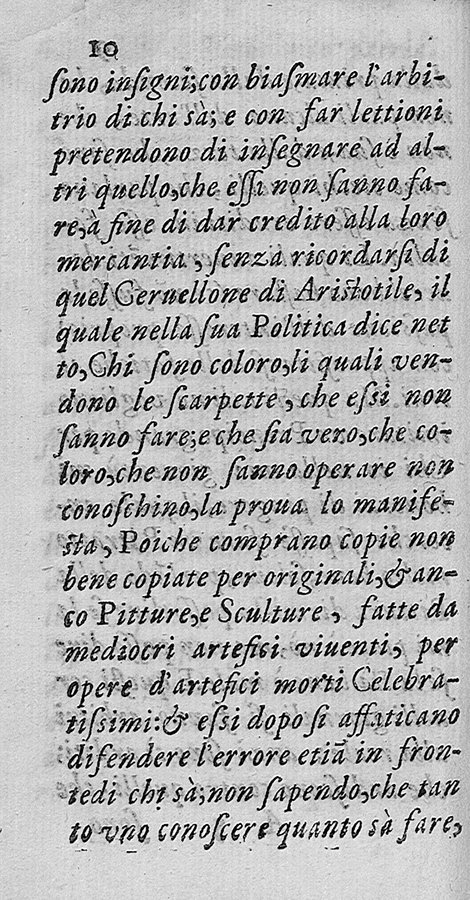 10
ſono inſigni;con biaſmare l'arbi-
trio di chi sà; e con far lettioni
pretendono di inſegnare ad al-
tri quello,che eſſi non ſanno fa-
re,à fine di dar credito alla loro
mercantia, ſenza ricordarſi di
quel Ceruellone di Ariſtotile, il
quale nella ſua Politica dice net
to,Chi ſono coloro,li quali ven-
dono le ſcarpette, che eſsi non
ſanno fare;e che ſia vero,che co-
loro,che non ſanno operare non
conoſchino,la proua lo manife-
ſta, Poiche comprano copie non
bene copiate per originali,& an-
co Pitture,e Sculture, fatte da
mediocri artefici viuenti, per
opere d'artefici morti Celebra-
tiſsimi:& eſsi dopo ſi affaticano
difendere l'errore etiã in fron-
tedi chi sà;non ſapendo,che tan
to vno conoſcere quanto sà fare,